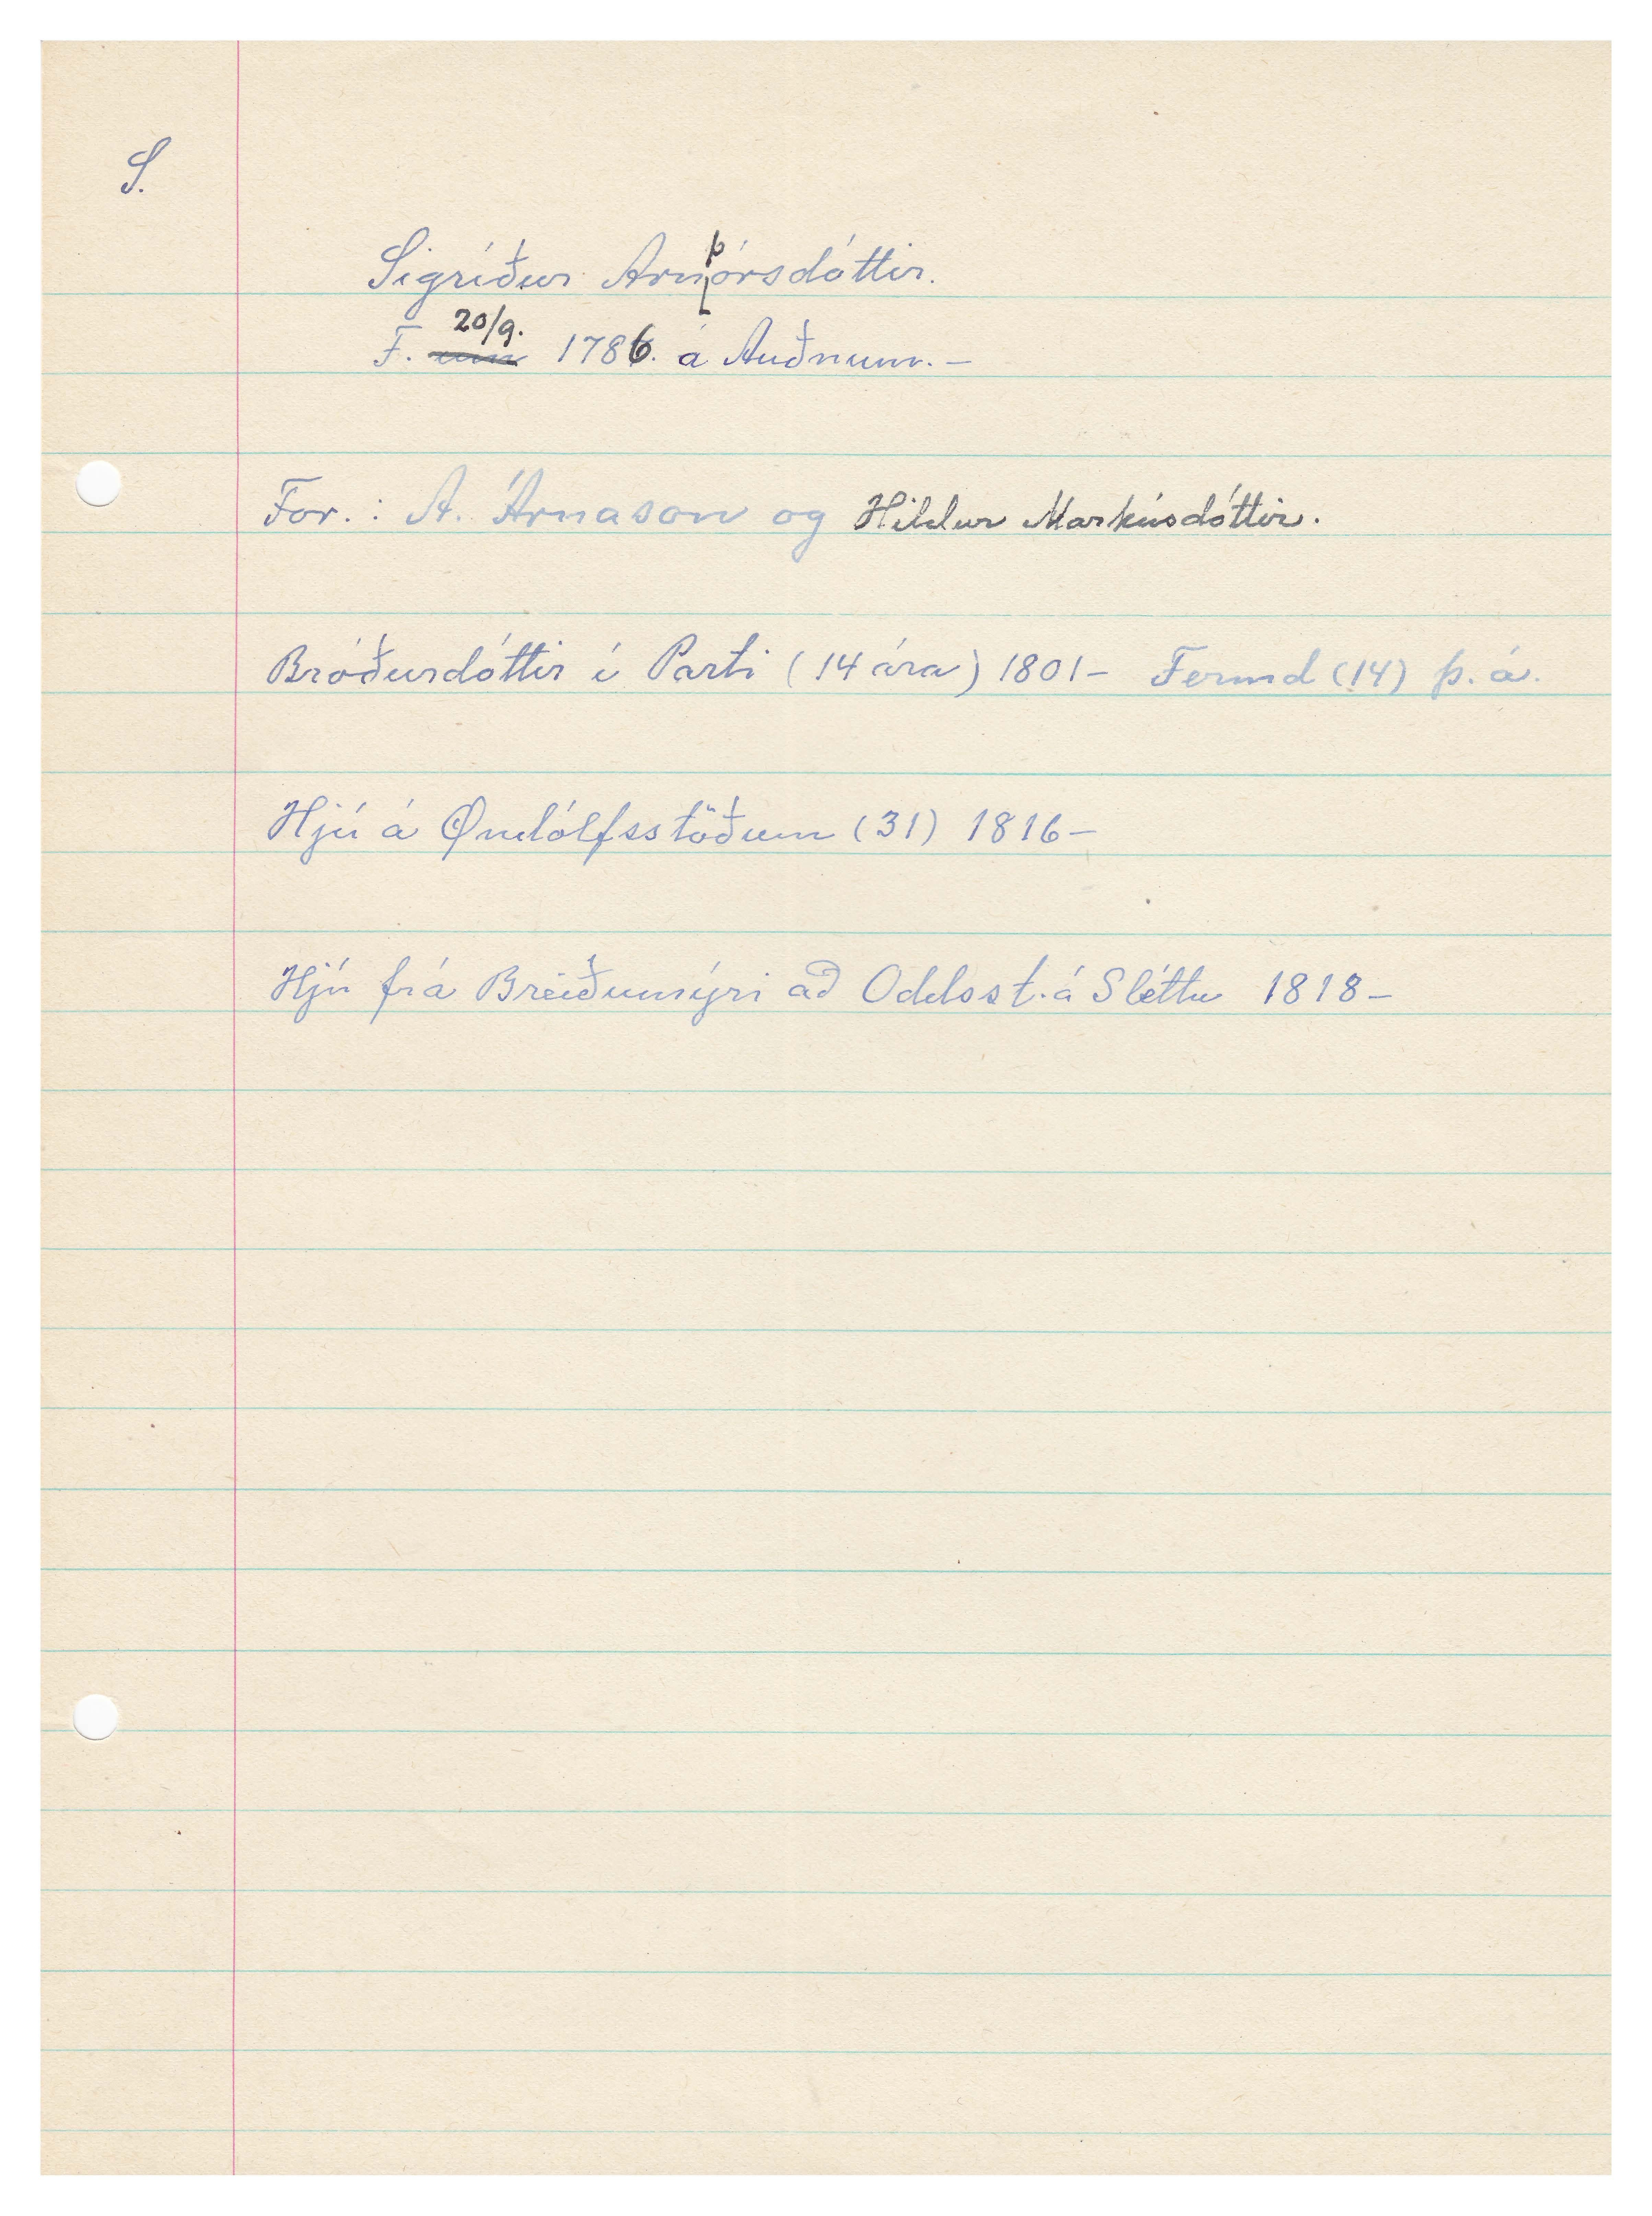 S.
Sigríður Arnþórsdóttir.
F. 20/9. 1786. á Auðnum. –
For.: A. Árnason og Hildur Markúsdóttir.
Bróðurdóttir í Parti (14 ára) 1801 – Fermd (14) þ. á.
Hjú á Öndólfsstöðum (31) 1816 –
Hjú frá Breiðumýri að Oddsst. á Sléttu 1818 –